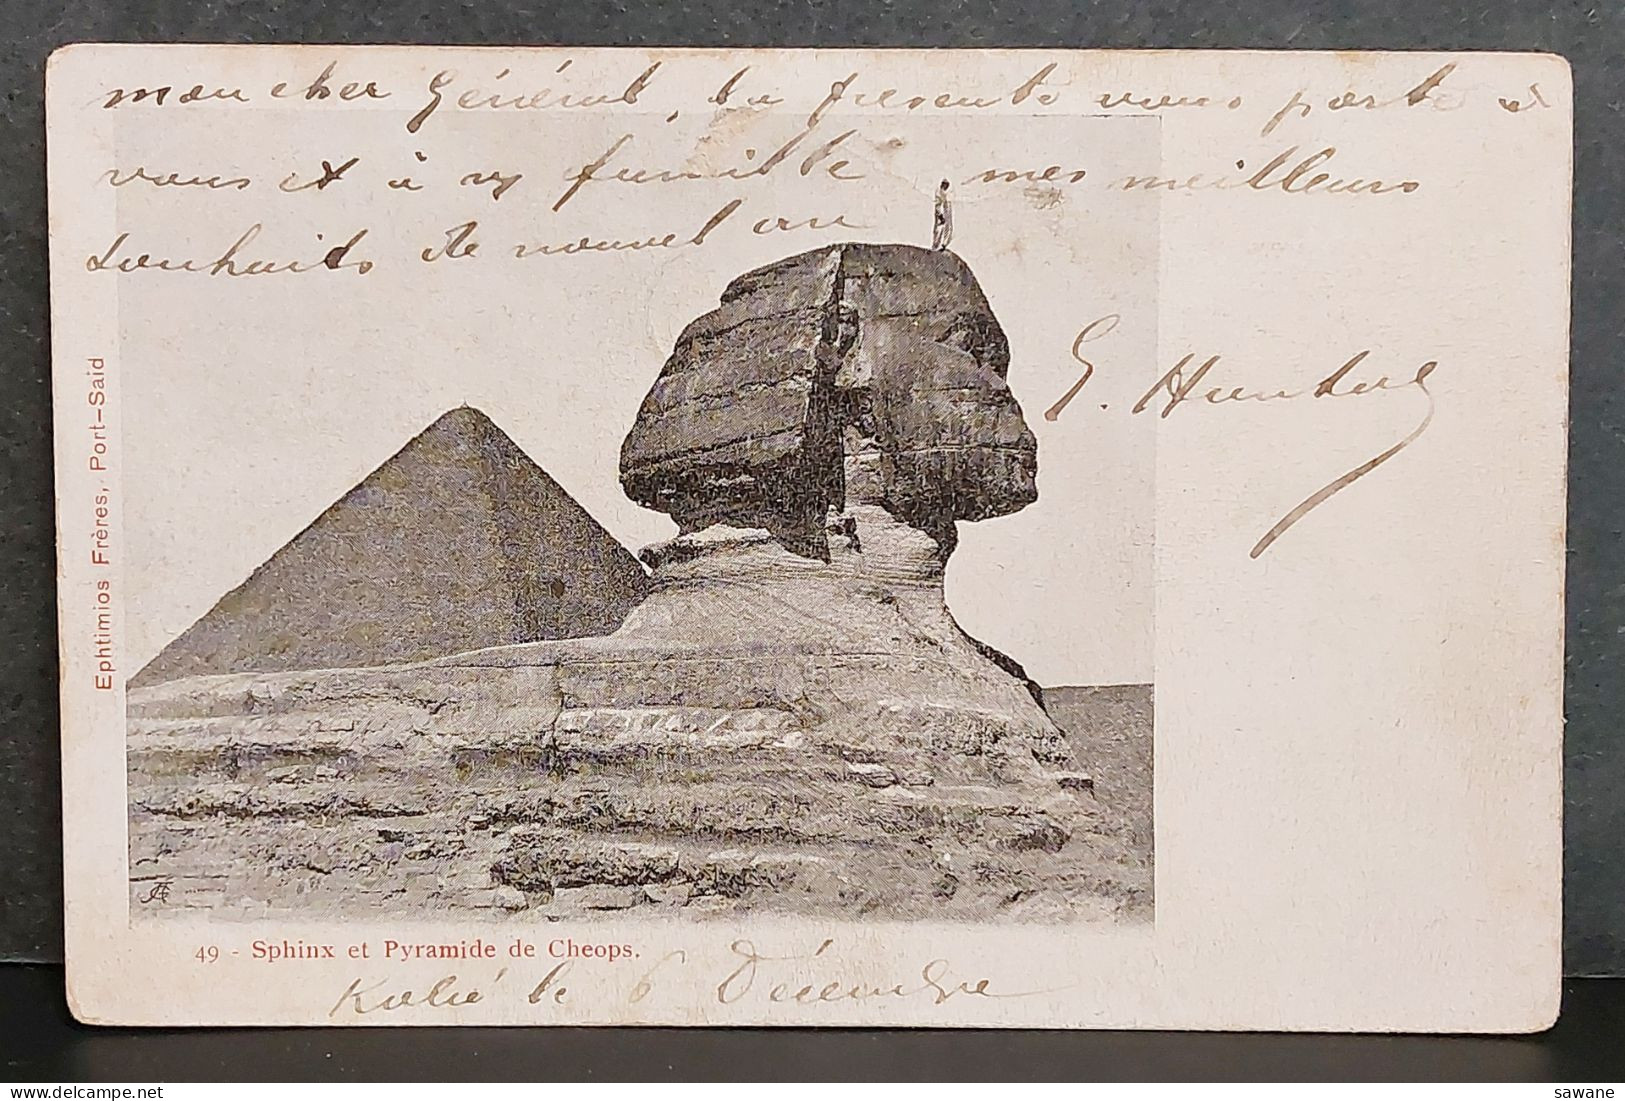 mon cher Général, la présente vous porte à
vous et à vy famille mes meilleurs
souhaits de nouvel an
G.
Ephtimios Frères, Port-Said
49 - Sphinx et Pyramide de Cheops.
le 6 Décembre
sawane